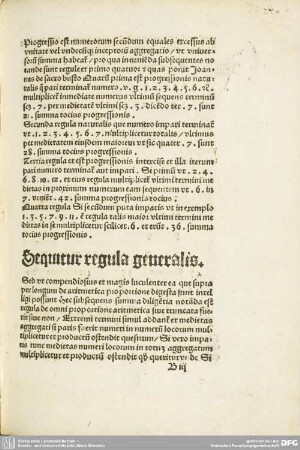 Progressio est numerorum secundum equales excessus ab
vnitate vel vndecūq̄ inceptorū aggregatio/ vt vniuer-
sorū summa habeat̄/ pro qua inuenēda subsequentes no
tande sunt regule et primo quatuor ꝯ quas ponit Joan-
nes de sacro busto Quarū prima est progressiōis natu-
ralis q̄ pari terminat̄ numero. v. g. 1. 2. 3. 4. 5. 6. vz.
multiplicet̄ immediate numerus vltimū sequens terminū
scz. 7. per medietatē vltimi scz. 3. dicēdo iter. 7. sunt
21. summa totius progressionis.
Secunda regula naturalis que numero impari terminat̄
vt. 1. 2. 3. 4. 5. 6. 7. multiplicetur totalis/ vltimus
per medietatem eiusdem maiorem vt sic quater. 7. sunt
28. summa totius progressionis.
Tertia regula et est progressionis intercise et illa iterum
pari numero terminat̄ aut impari. Si primū vt. 2. 4.
6. 8. 10. 12. et eius regula multiplicat̄ vltimi termini me
dietas in proximum numerum eam sequentem vt. 6. in
7. veniēt. 42. summa progressionis totius.
Quarta regula Si secūdum puta imparis vt in exemplo
1. 3. 5. 7. 9. 11. ē regula talis maior vltimi termini me
dietas in se multiplicetur scilicet. 6. et erūt. 36. summa
totius progressionis.
Sequitur regula generalis.
Sed vt compendiosius et magis luculenter ea que supra
per longum de aritmetica proportione digesta sunt intel
ligi possunt hec subsequens summa diligētia notāda est
regula de omni proportione aritmetica siue truncata fue
rit siue non/ Extremi termini simul addant̄ et medietas
aggregati si paris fuerit numeri in numerū locorum mul-
tiplicetur et productū ostendit quesitum/ Si vero impa-
ris tunc medietas numeri locorum in totum aggregatum
multiplicetur et productū ostendit qd̄ queritur vt de Si
B iij